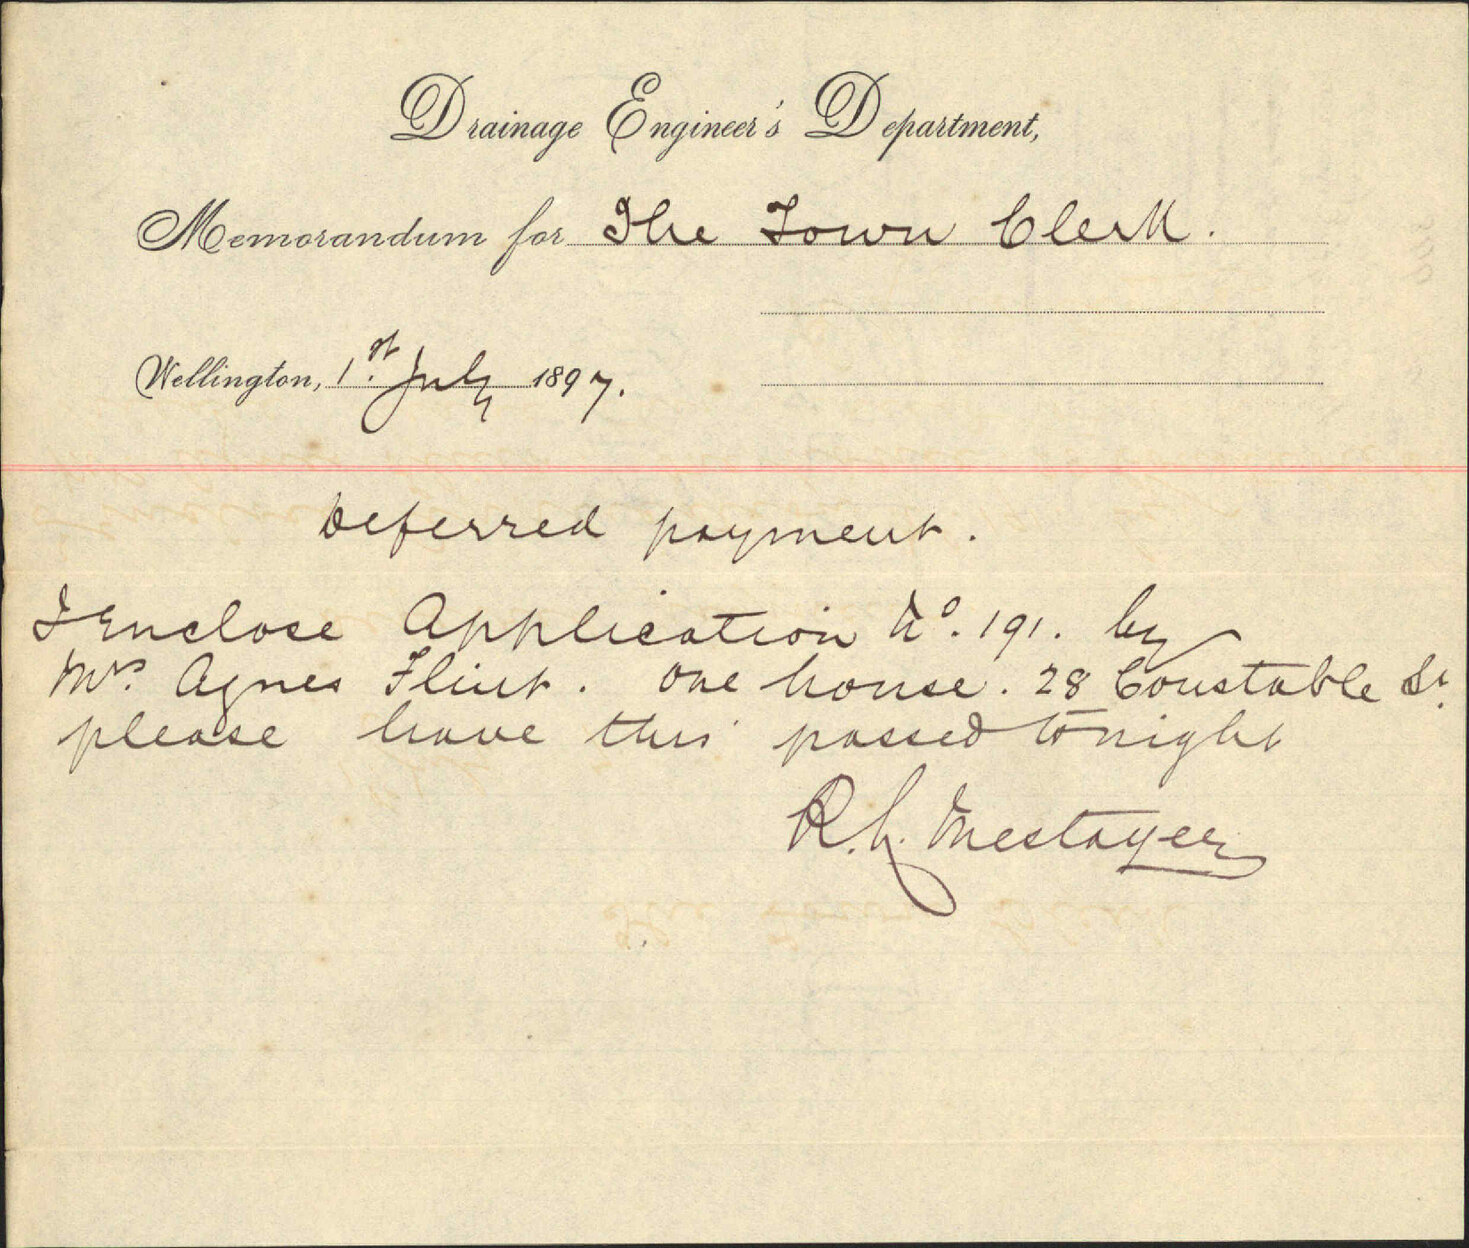 Drainage Engineer's Department,
Memorandum for The Town Clerk.
Wellington, 1st. July 1897.
Deferred payment.
I Enclose Application No. 191. by
Mrs. Agnes Flint. One house. 28 Constable St.
please have this passed tonight
R. L. Mestayer